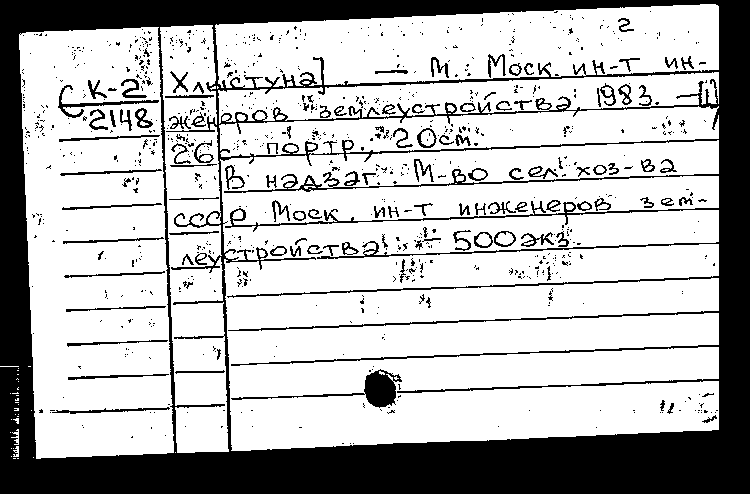 2
С К-2
2148
Хлыстуна]. — М.: Моск. ин-т ин-
женеров землеустройства, 1983. — [1]
26 с., портр.; 20 см.
В надзаг.: М-во сел. хоз-ва
СССР, Моск. ин-т инженеров зем-
леустройства. — 500 экз.